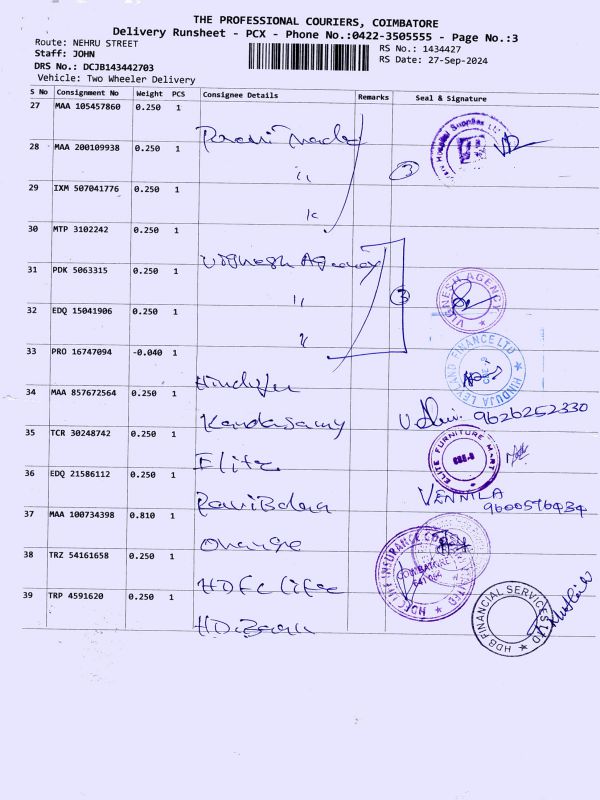 THE PROFESSIONAL COURIERS, COIMBATORE
Delivery Runsheet - PCX - Phone No.:0422-3505555 - Page No.:3
Route: NEHRU STREET
RS No.: 1434427
Staff: JOHN
RS Date: 27-Sep-2024
DRS No.: DCJB143442703
Vehicle: Two Wheeler Delivery
S No Consignment No Weight PCS Consignee Details Remarks Seal & Signature
27 MAA 105457860 0.250 1
28 MAA 200109938 0.250 1
3
29 IXM 507041776 0.250 1
30 MTP 3102242 0.250 1
Vignesh Agency
31 PDK 5063315 0.250 1
3 VIGNESH AGENCY
32 EDQ 15041906 0.250 1
33 PRO 16747094 -0.040 1
HINDUJA LEYLAND FINANCE LTD
34 MAA 857672564 0.250 1
Kandasamy 9626252330
35 TCR 30248742 0.250 1
Elite ELITE FURNITURE MART
36 EDQ 21586112 0.250 1
VENNILA
9600576434
37 MAA 100734398 0.810 1
Orange
38 TRZ 54161658 0.250 1
HDFC Life HDFC LIFE INSURANCE COIMBATORE
39 TRP 4591620 0.250 1
HDB FINANCIAL SERVICES LTD